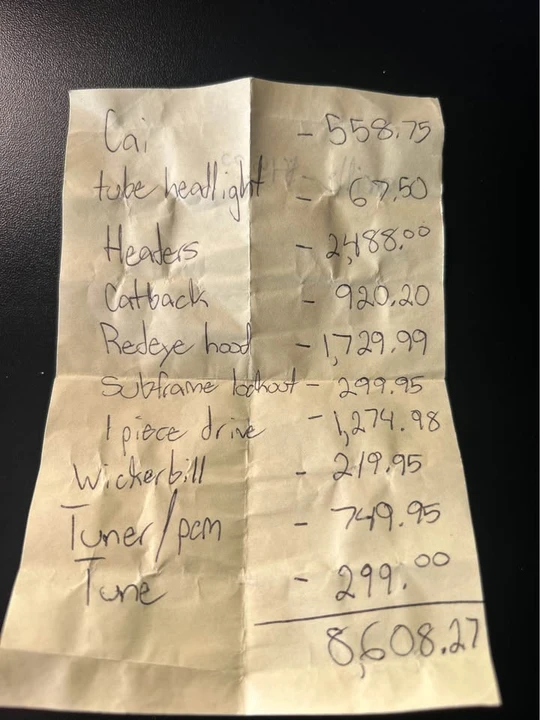 Cai - 558.75
tube headlight - 67.50
Headers - 2,488.00
Catback - 920.20
Redeye hood - 1,729.99
Subframe lockout - 299.95
1 piece drive - 1,274.98
Wickerbill - 219.95
Tuner/pcm - 749.95
Tune - 299.00
8,608.27